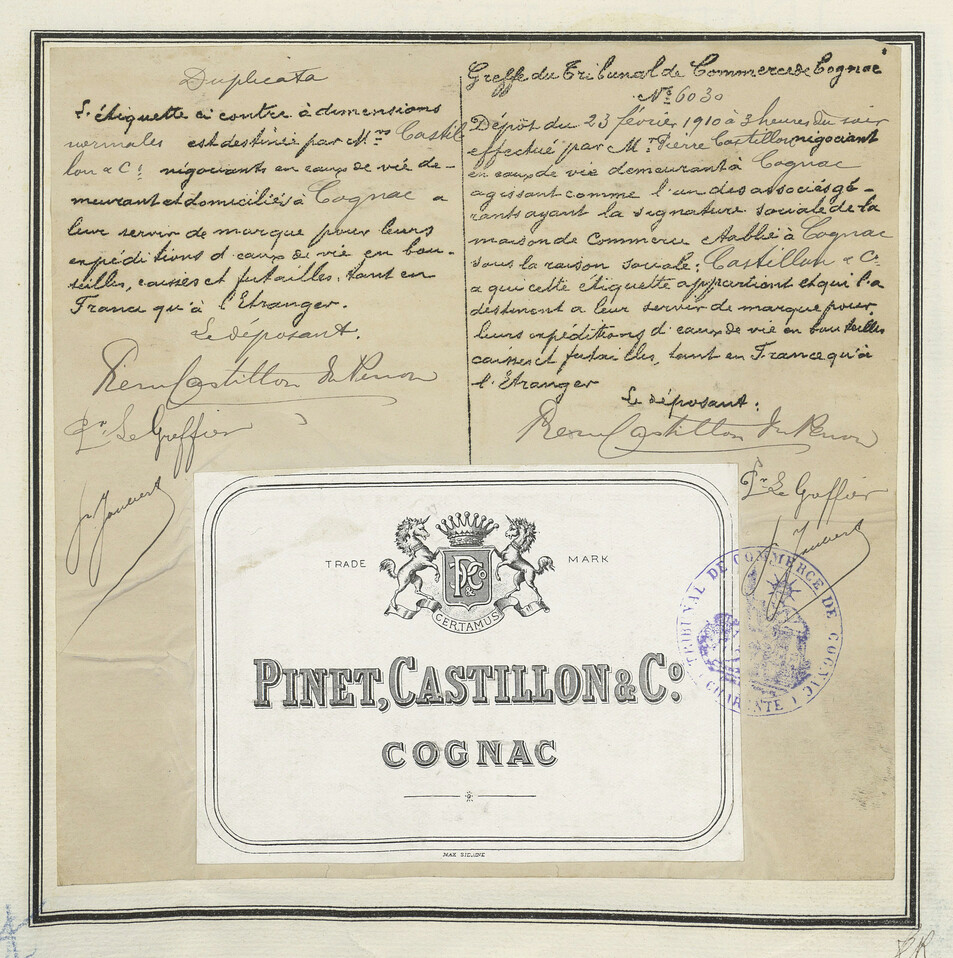 Duplicata
L'étiquette ci contre à dimensions
normales est destinée par Mrs Castil
lon & Cº négociants en eaux de vie de-
meurant et domiciliés à Cognac a
leur servir de marque pour leurs
expéditions d'eaux de vie en bou-
teilles, caisses et futailles, tant en
France qu'à l'Etranger.
Le déposant.
Pierre Castillon du Perron
Pr Le Greffier
Greffe du Tribunal de Commerce de Cognac
Nº 6030
Dépôt du 23 février 1910 à 3 heures du soir
effectué par Mr Pierre Castillon négociant
en eaux de vie demeurant à Cognac
agissant comme l'un des associés gé-
rants ayant la signature sociale de la
maison de Commerce établie à Cognac
sous la raison sociale: Castillon & Cº
a qui cette étiquette appartient et qui l'a
destinent a leur servir de marque pour
leurs expéditions d'eaux de vie en bouteilles
caisses et futailles, tant en France qu'à
l'Etranger
Le déposant:
Pierre Castillon du Perron
Pr Le Greffier
TRIBUNAL DE COMMERCE DE COGNAC
(CHARENTE)
TRADE MARK
P&Cº
CERTAMUS
PINET, CASTILLON & Cº.
COGNAC